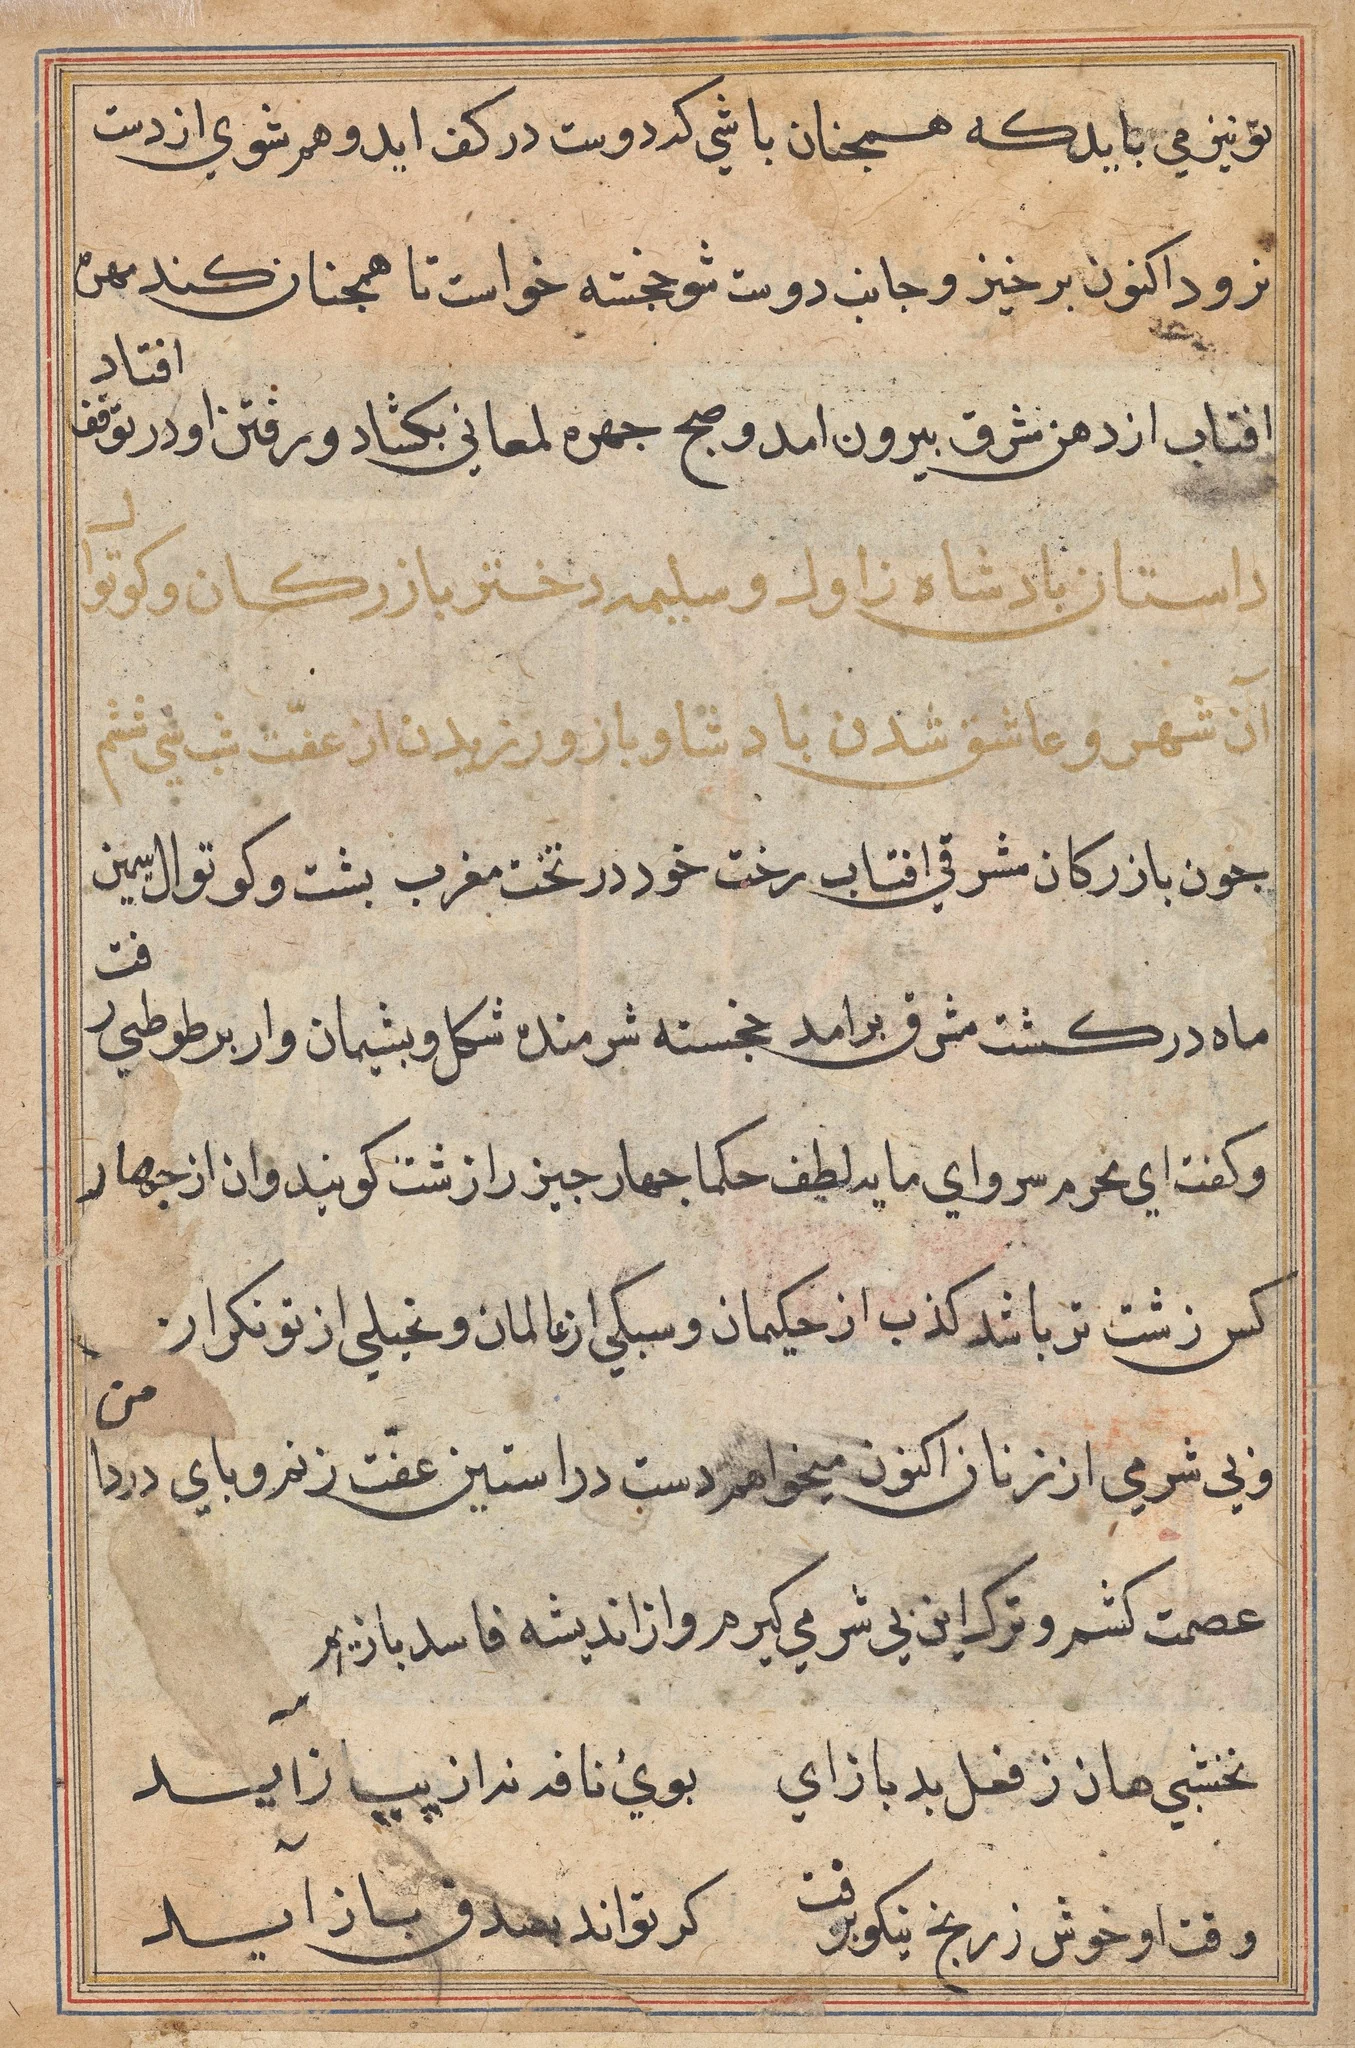 تو نیز می باید که همجنان باشي که دوست در کف اید و هم شوي از دست
نرود اکنون برخیز و جانب دوست شو خجسته خواست تا همجنان کند مهره
افتاب از دهن مشرق بیرون امد و صبح جهره لمعاني بکشاد و رفتن او در توقف افتاد
داستان بادشاه زاول و سلیمه دختر بازرکان و کوتوال
آن شهر و عاشق شدن بادشا و باز ورزیدن از عفّت شب سي ششم
جون بازرکان مشرقي افتاب رخت خود در تخت مغرب بشت و کوتوال سیمین
ماه در کشت مشرق برامد خجسته شرمنده شکل و بشیمان وار بر طوطي رفت
و کفت اي محرم سر و اي مایه لطف حکما جهار جیز را زشت کویند و ان از جهار
کس زشت تر باشد کذب از حکیمان و سبکي از عالمان و بخیلي از تونکران
و بي شرمي از زنان اکنون میخواهم دست در استین عفّت زنم و باي در دامن
عصمت کشم و ترک این بي شرمي کیرم و از اندیشه فاسد باز
نخشبي هان ز فعل بد باز اي بوئ نافه نه از پیاز آید
وقت او خوش ز رنج نیکو برفت کر تواند بصدق باز آید